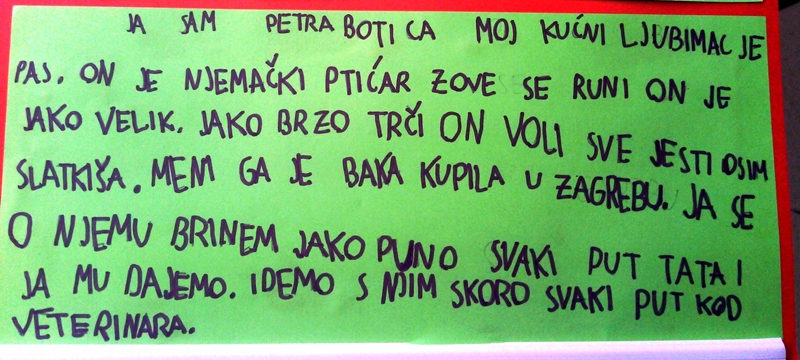 JA SAM PETRA BOTICA MOJ KUĆNI LJUBIMAC JE
PAS. ON JE NJEMAČKI PTIĆAR ZOVE SE RUNI ON JE
JAKO VELIK. JAKO BRZO TRČI ON VOLI SVE JESTI OSIM
SLATKIŠA. MENI GA JE BAKA KUPILA U ZAGREBU. JA SE
O NJEMU BRINEM JAKO PUNO SVAKI PUT TATA I
JA MU DAJEMO. IDEMO S NJIM SKORO SVAKI PUT KOD
VETERINARA.